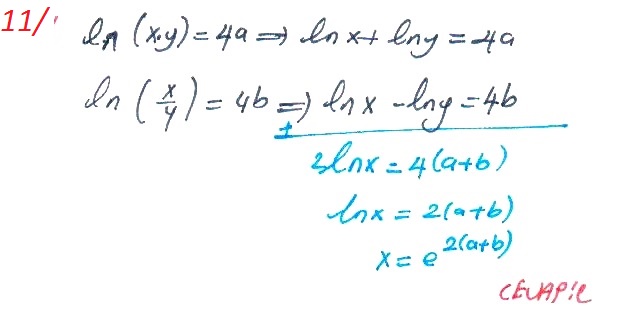 11/ ln (x.y) = 4a => ln x + ln y = 4a
ln (x/y) = 4b => ln x - ln y = 4b
+
2lnx = 4(a+b)
lnx = 2(a+b)
x = e^2(a+b)
CEVAP:C